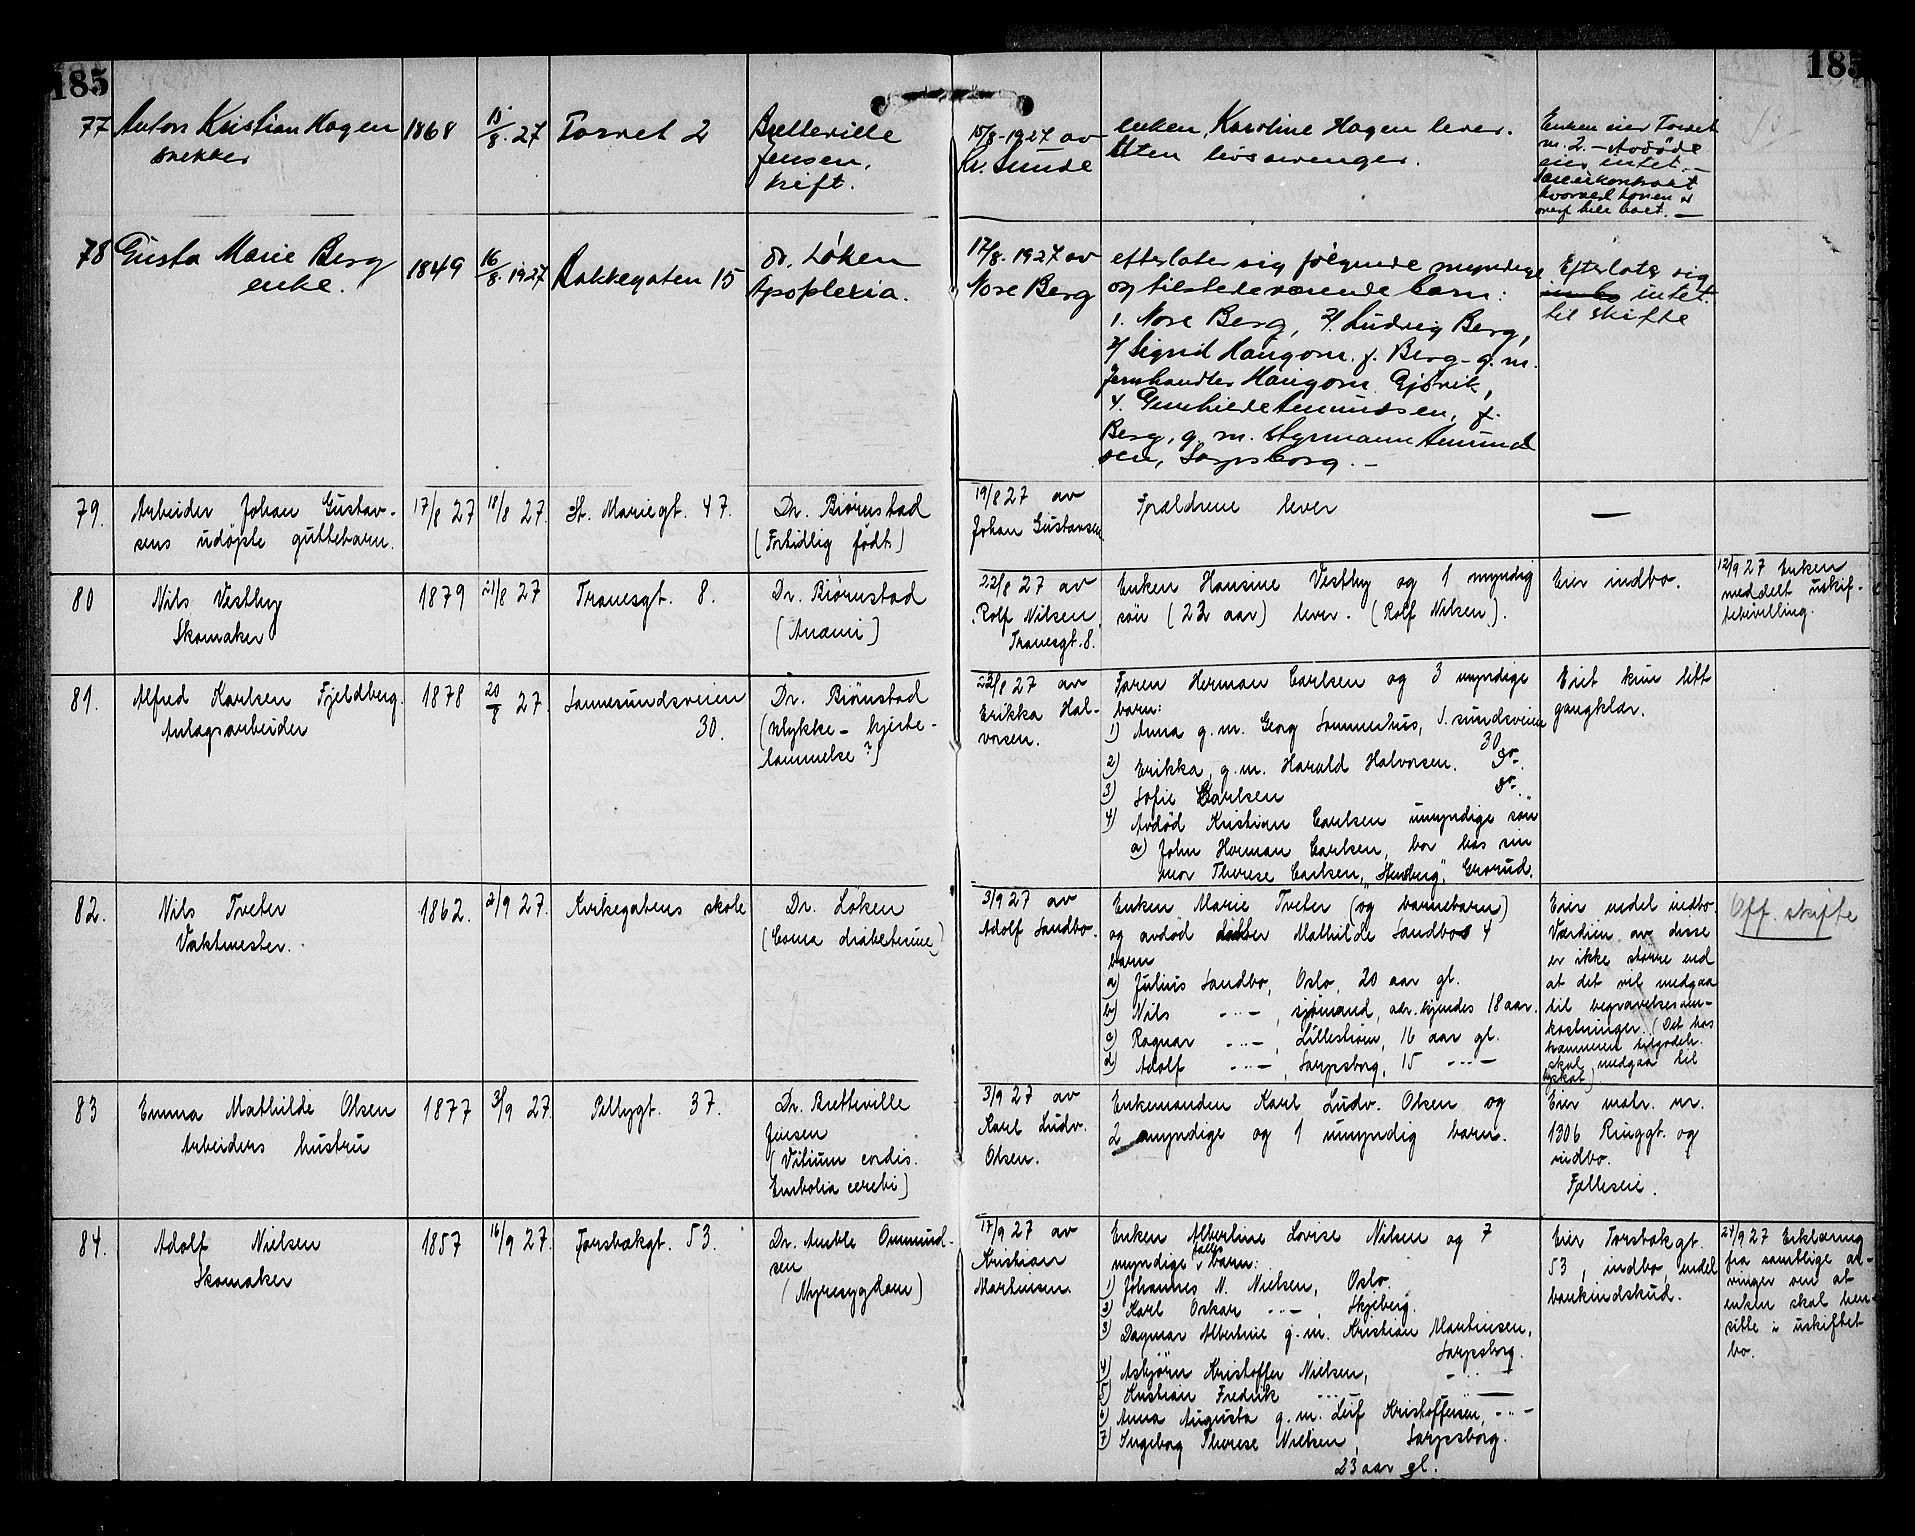 185
185
77
Anton Kristian Hagen
snekker
1868
15/8. 27
Torvet 2
Bretteville
Jensen.
kreft.
15/8-1927 av
Kr. Sunde
Enken, Karoline Hagen lever.
Uten livsarvinger.
Enken eier Torvet
nr. 2. - Avdöde
eier intet. -
hele boet. -
78
Gusta Marie Berg
enke.
1849
16/8. 1927
Bakkegaten 15
Dr. Löken
Apoplexia.
17/8. 1927 av
Nore Berg
efterlater sig følgende myndige
og tilstedeværende barn:
1. Nore Berg, 2/ Ludvig Berg,
3/ Sigrid Haugom. f. Berg - g. m.
Jernhandler Haugom Gjövik,
4. Gunhilde Amundsen, f.
Berg, g. m. Styrmann Amund
sen, Sarpsborg. -
Efterlater sig
intet.
til skifte
79.
Arbeider Johan Gustav-
sens udöpte guttebarn.
17/8 27
18/8 27.
St. Mariegt. 47.
Dr. Biörnstad
(Fortidlig födt)
19/8 27 av
Johan Gustavsen
Forældrene lever
—
80
Nils Vestby
Skomaker
1879
21/8 27
Tranesgt. 8.
Dr. Biörnstad
(Anæmi)
22/8 27 av
Rolf Nilsen,
Tranesgt. 8.
Enken Hansine Vestby og 1 myndig
sön (23 aar) lever. (Rolf Nilsen).
Eier indbo.
12/9 27 Enken
meddelt uskif-
tebevilling.
81.
Alfred Karlsen Fjeldberg.
Anlægsarbeider
1878
20/8 27.
Sannesundsveien
30.
Dr. Biörnstad
(Ulykke - hjerte-
lammelse?)
23/8 27 av
Erikka Hal-
vorsen.
Faren Herman Carlsen og 3 myndige
barn:
1) Anna g. m. Georg Sommerhus, S. sundsveien
30
2) Erikka, g. m. Harald Halvorsen. do-
3) Sofie Carlsen do-
4) Avdöd Kristian Carlsen umyndige sön
a) John Herman Carlsen, bor hos sin
mor Therese Carlsen, Grorud.
Eiet kun litt
gangklær.
82.
Nils Tveter
Vaktmester.
1862.
2/9 27.
Kirkegatens skole
Dr. Löken
(Coma diabeticum)
3/9 27 av
Adolf Sandbo.
Enken Marie Tveter (og barnebarn)
og avdöd datter Mathilde Sandbos 4
barn
a) Julius Sandbo, Oslo, 20 aar gl.
b) Nils -"-, sjömand, adr. kjendes 18 aar.
c) Ragnar -"-, Lilleström, 16 aar gl.
d) Adolf -"-, Sarpsborg, 15 -"-
Eier endel indbo.
Værdien av disse
er ikke större end
at det vil medgaa
til begravelsesom-
kostninger. (Det hos
kæmneren tilgodeh.
skal medgaa til
skat)
Off. skifte
83
Emma Mathilde Olsen
Arbeiders hustru
1877
3/9 27.
Pellygt. 37.
Dr. Bretteville
Jensen
(Vitium cordis.
Embolia cerebi)
3/9 27 av
Karl Ludv.
Olsen.
Enkemanden Karl Ludv. Olsen og
2 myndige og 1 umyndig barn.
Eier matr. nr.
1306 Ringgt. og
indbo.
Fælleseie.
84.
Adolf Nielsen
Skomaker
1857
16/9 27.
Torsbækgt. 53.
Dr. Amble Ommund-
sen
(Nyresygdom)
17/9 27 av
Kristian
Martinsen.
Enken Albertine Lovise Nilsen og 7
myndige fælles barn:
1) Johannes N. Nielsen, Oslo.
2) Karl Oskar -"-, Skjeberg.
3) Dagmar Albertine g. m. Kristian Martinsen,
Sarpsborg.
4) Asbjörn Kristoffer Nielsen, -"-
5) Kristian Fredrik -"- —
6) Anna Augusta g. m. Leif Kristoffersen, -"-
7) Ingeborg Therese Nielsen, Sarpsborg.
23 aar gl.
Eier Torsbækgt.
53, indbo, endel
bankindskud.
24/9 27 Erklæring
fra samtlige ar-
vinger om at
enken skal hen-
sitte i uskiftet
bo.